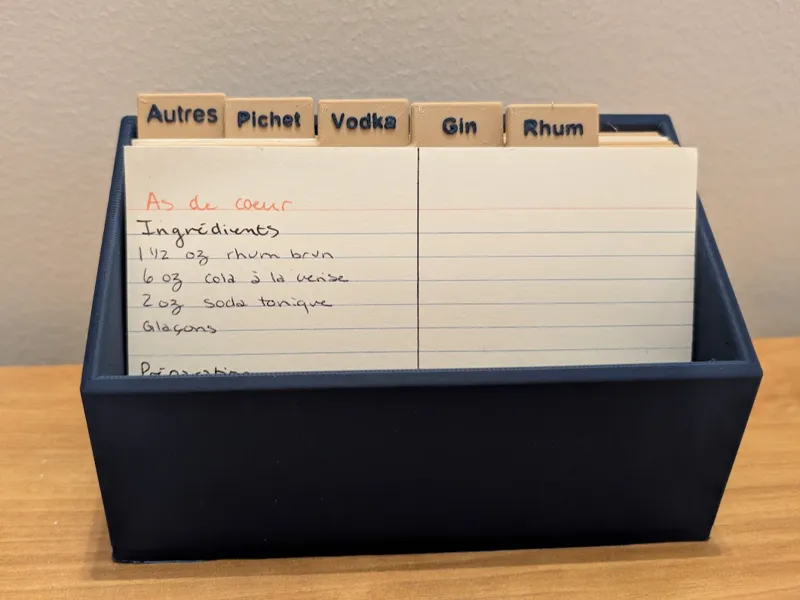 Autres
Pichet
Vodka
Gin
Rhum
As de coeur
Ingrédients
1 1/2 oz rhum brun
6 oz cola à la cerise
2 oz soda tonique
Glaçons
Préparation